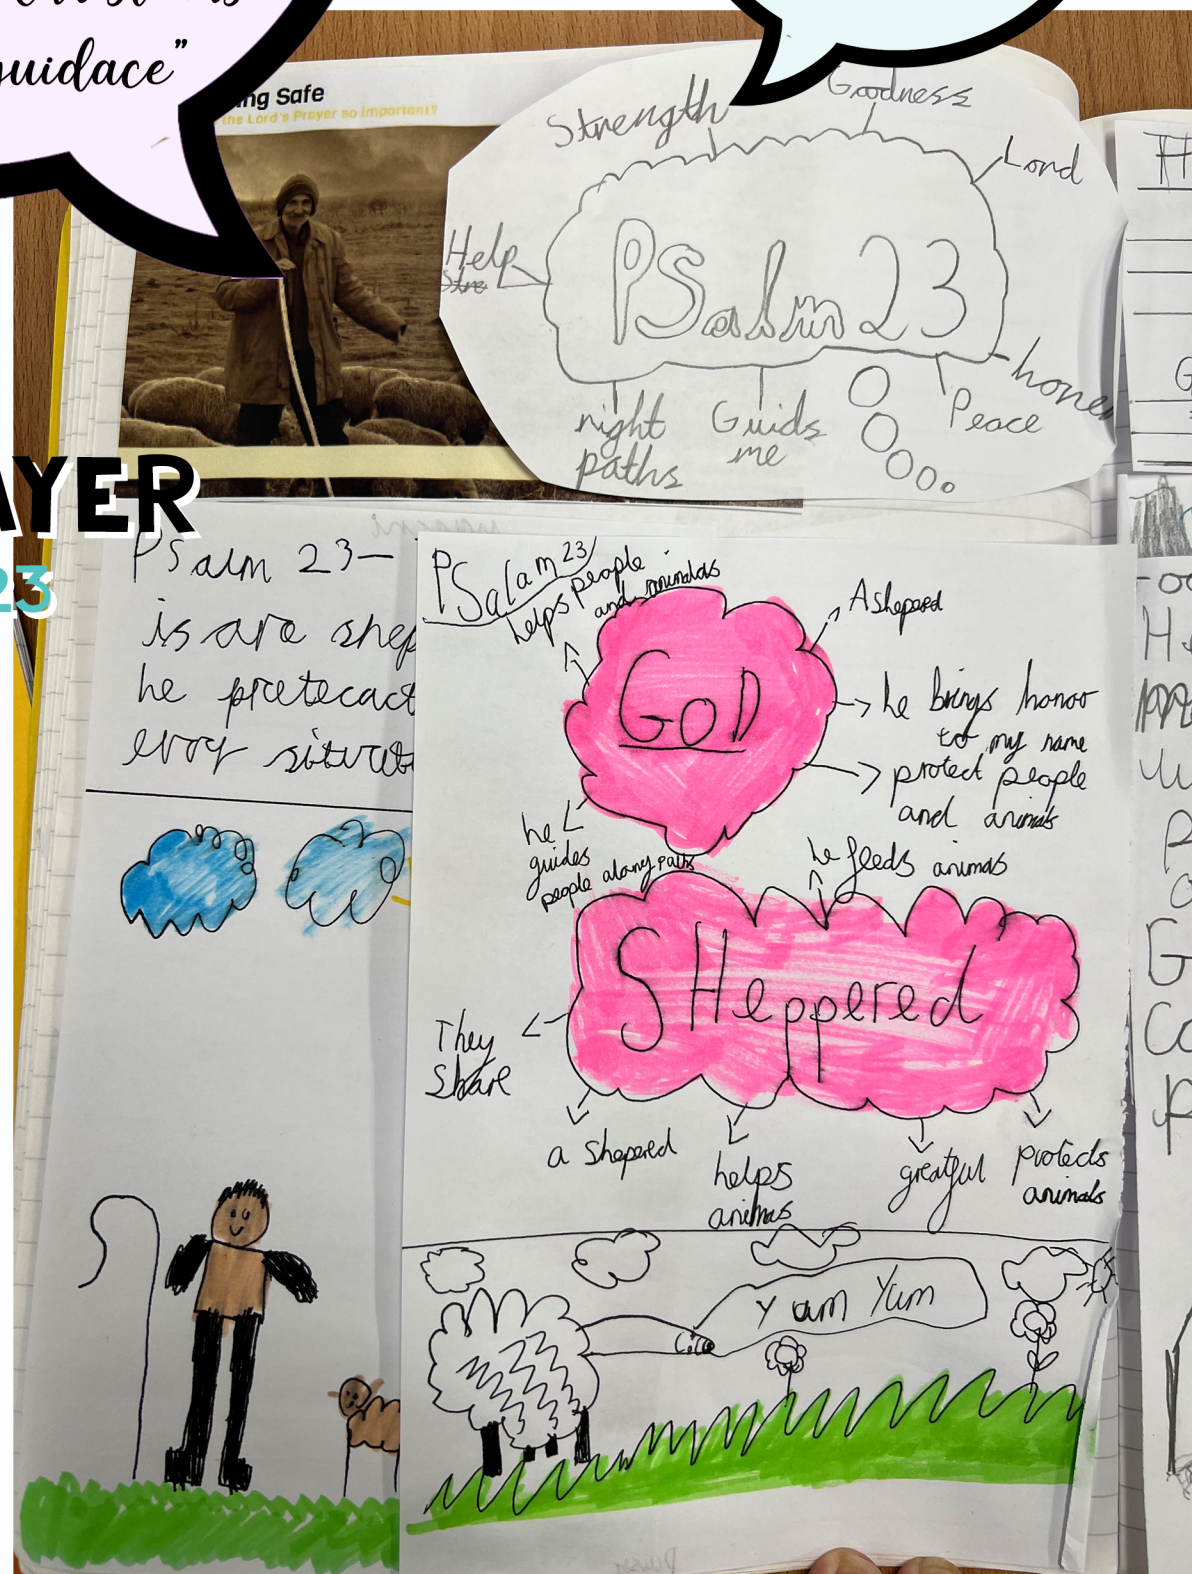 guidace"
ng Safe
the Lord's Prayer so important?
Strength
Goodness
Lord
Help
PSalm 23
honer
Peace
Guids
me
right
paths
AYER
23
PSalm 23-
is are shep
he pretecact
evry
PSalam 23
helps people
and animalas
A shepered
GOD
he brings honor
to my name
protect people
and animals
he
guides
people along paths
he feeds animas
SHeppered
They
Share
a shepered
helps
animas
greatful
protects
animals
Yum Yum